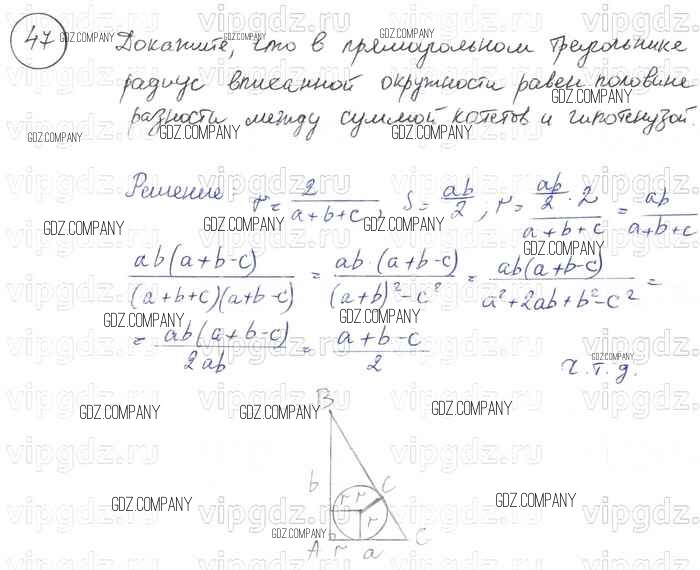 47 Докажите, что в прямоугольном треугольнике
радиус вписанной окружности равен половине
разности между суммой катетов и гипотенузой.
Решение: r = 2/(a+b+c), S = ab/2, r = (ab/2 · 2)/(a+b+c) = ab/(a+b+c)
ab(a+b-c)/((a+b+c)(a+b-c)) = ab·(a+b-c)/((a+b)²-c²) = ab(a+b-c)/(a²+2ab+b²-c²) =
= ab(a+b-c)/2ab = (a+b-c)/2
ч.т.д.
B
b r r C
r
A r a C
GDZ.COMPANY
vipgdz.ru